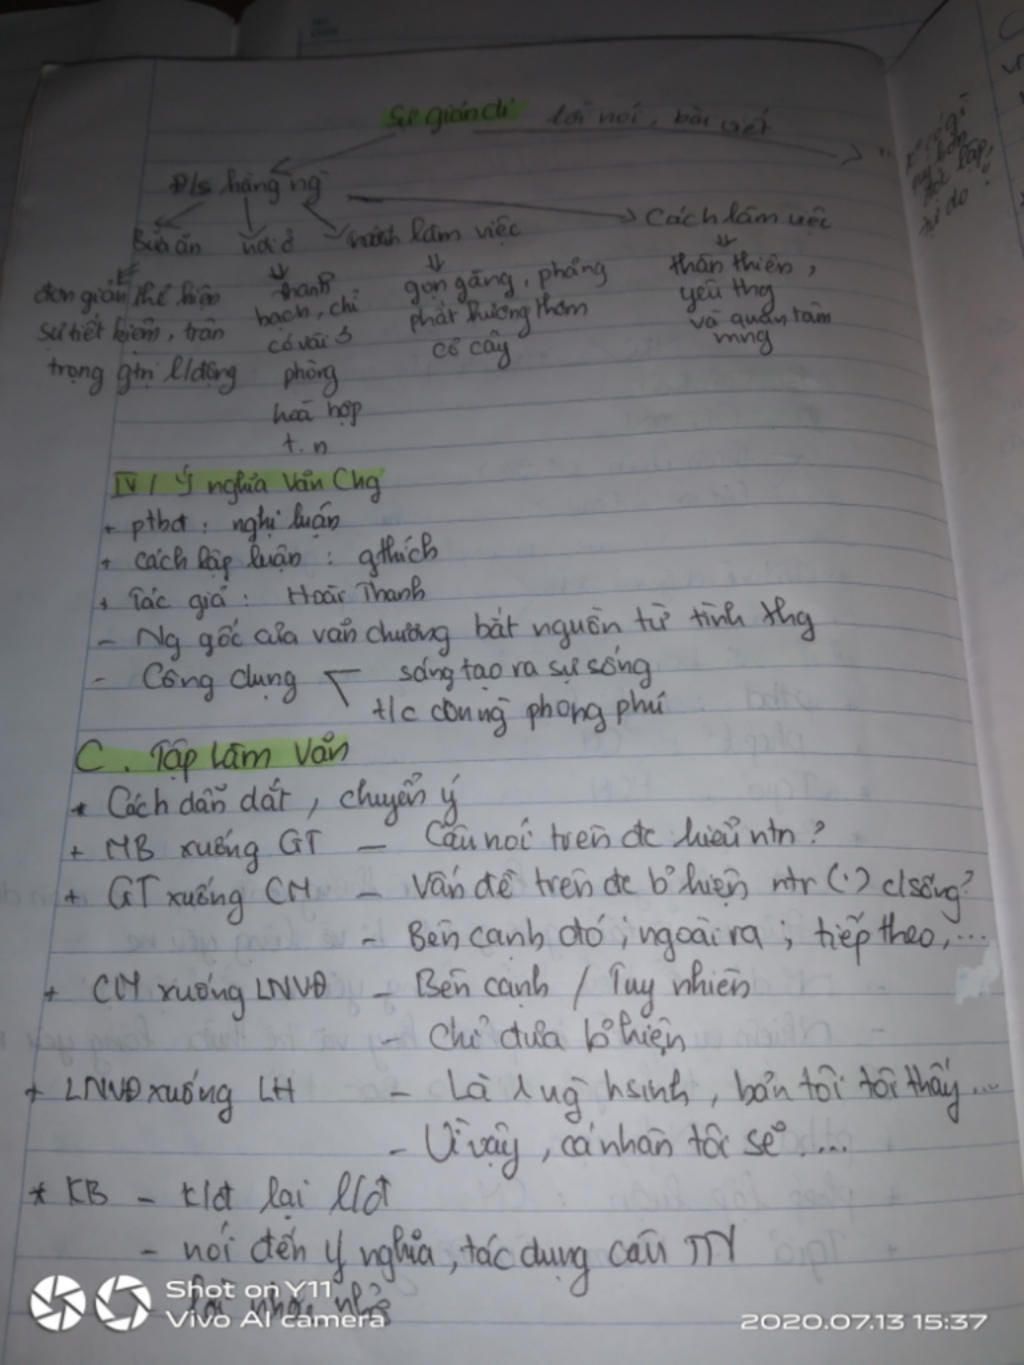 Sự giản dị lời nói, bài viết
Đ/s hằng ng̀
Bữa ăn nơi ở cách làm việc Cách làm việc
đơn giản thể hiện
sự tiết kiệm, trân
trọng gtrị l/động
thanh
bạch, chỉ
có vài 3
phòng
hoà hợp
t.n
gọn gàng, phảng
phất hương thơm
cỏ cây
thân thiện,
yêu thg
và quan tâm
mng
IV / Ý nghĩa Văn Chg
+ ptbđ : nghị luận
+ cách lập luận : gthích
+ Tác giả : Hoài Thanh
- Ng gốc của văn chương bắt nguồn từ tình thg
- Công dụng sáng tạo ra sự sống
t/c con ng̀ phong phú
C. Tập làm văn
* Cách dẫn dắt, chuyển ý
+ MB xuống GT - Câu nói trên đc hiểu ntn?
+ GT xuống CM - Vấn đề trên đc b' hiện ntn (.) c/sống?
- Bên cạnh đó ; ngoài ra ; tiếp theo,...
+ CM xuống LNVĐ - Bên cạnh / Tuy nhiên
- Chỉ đưa b' hiện
+ LNVĐ xuống LH - Là 1 ng̀ hsinh, bản tôi tôi thấy...
- Vì vậy, cá nhân tôi sẽ....
* KB - k/đt lại l/đt
- nói đến ý nghĩa, tác dụng câu TTY
- lời nhắn nhủ
Shot on Y11
Vivo AI camera
2020.07.13 15:37